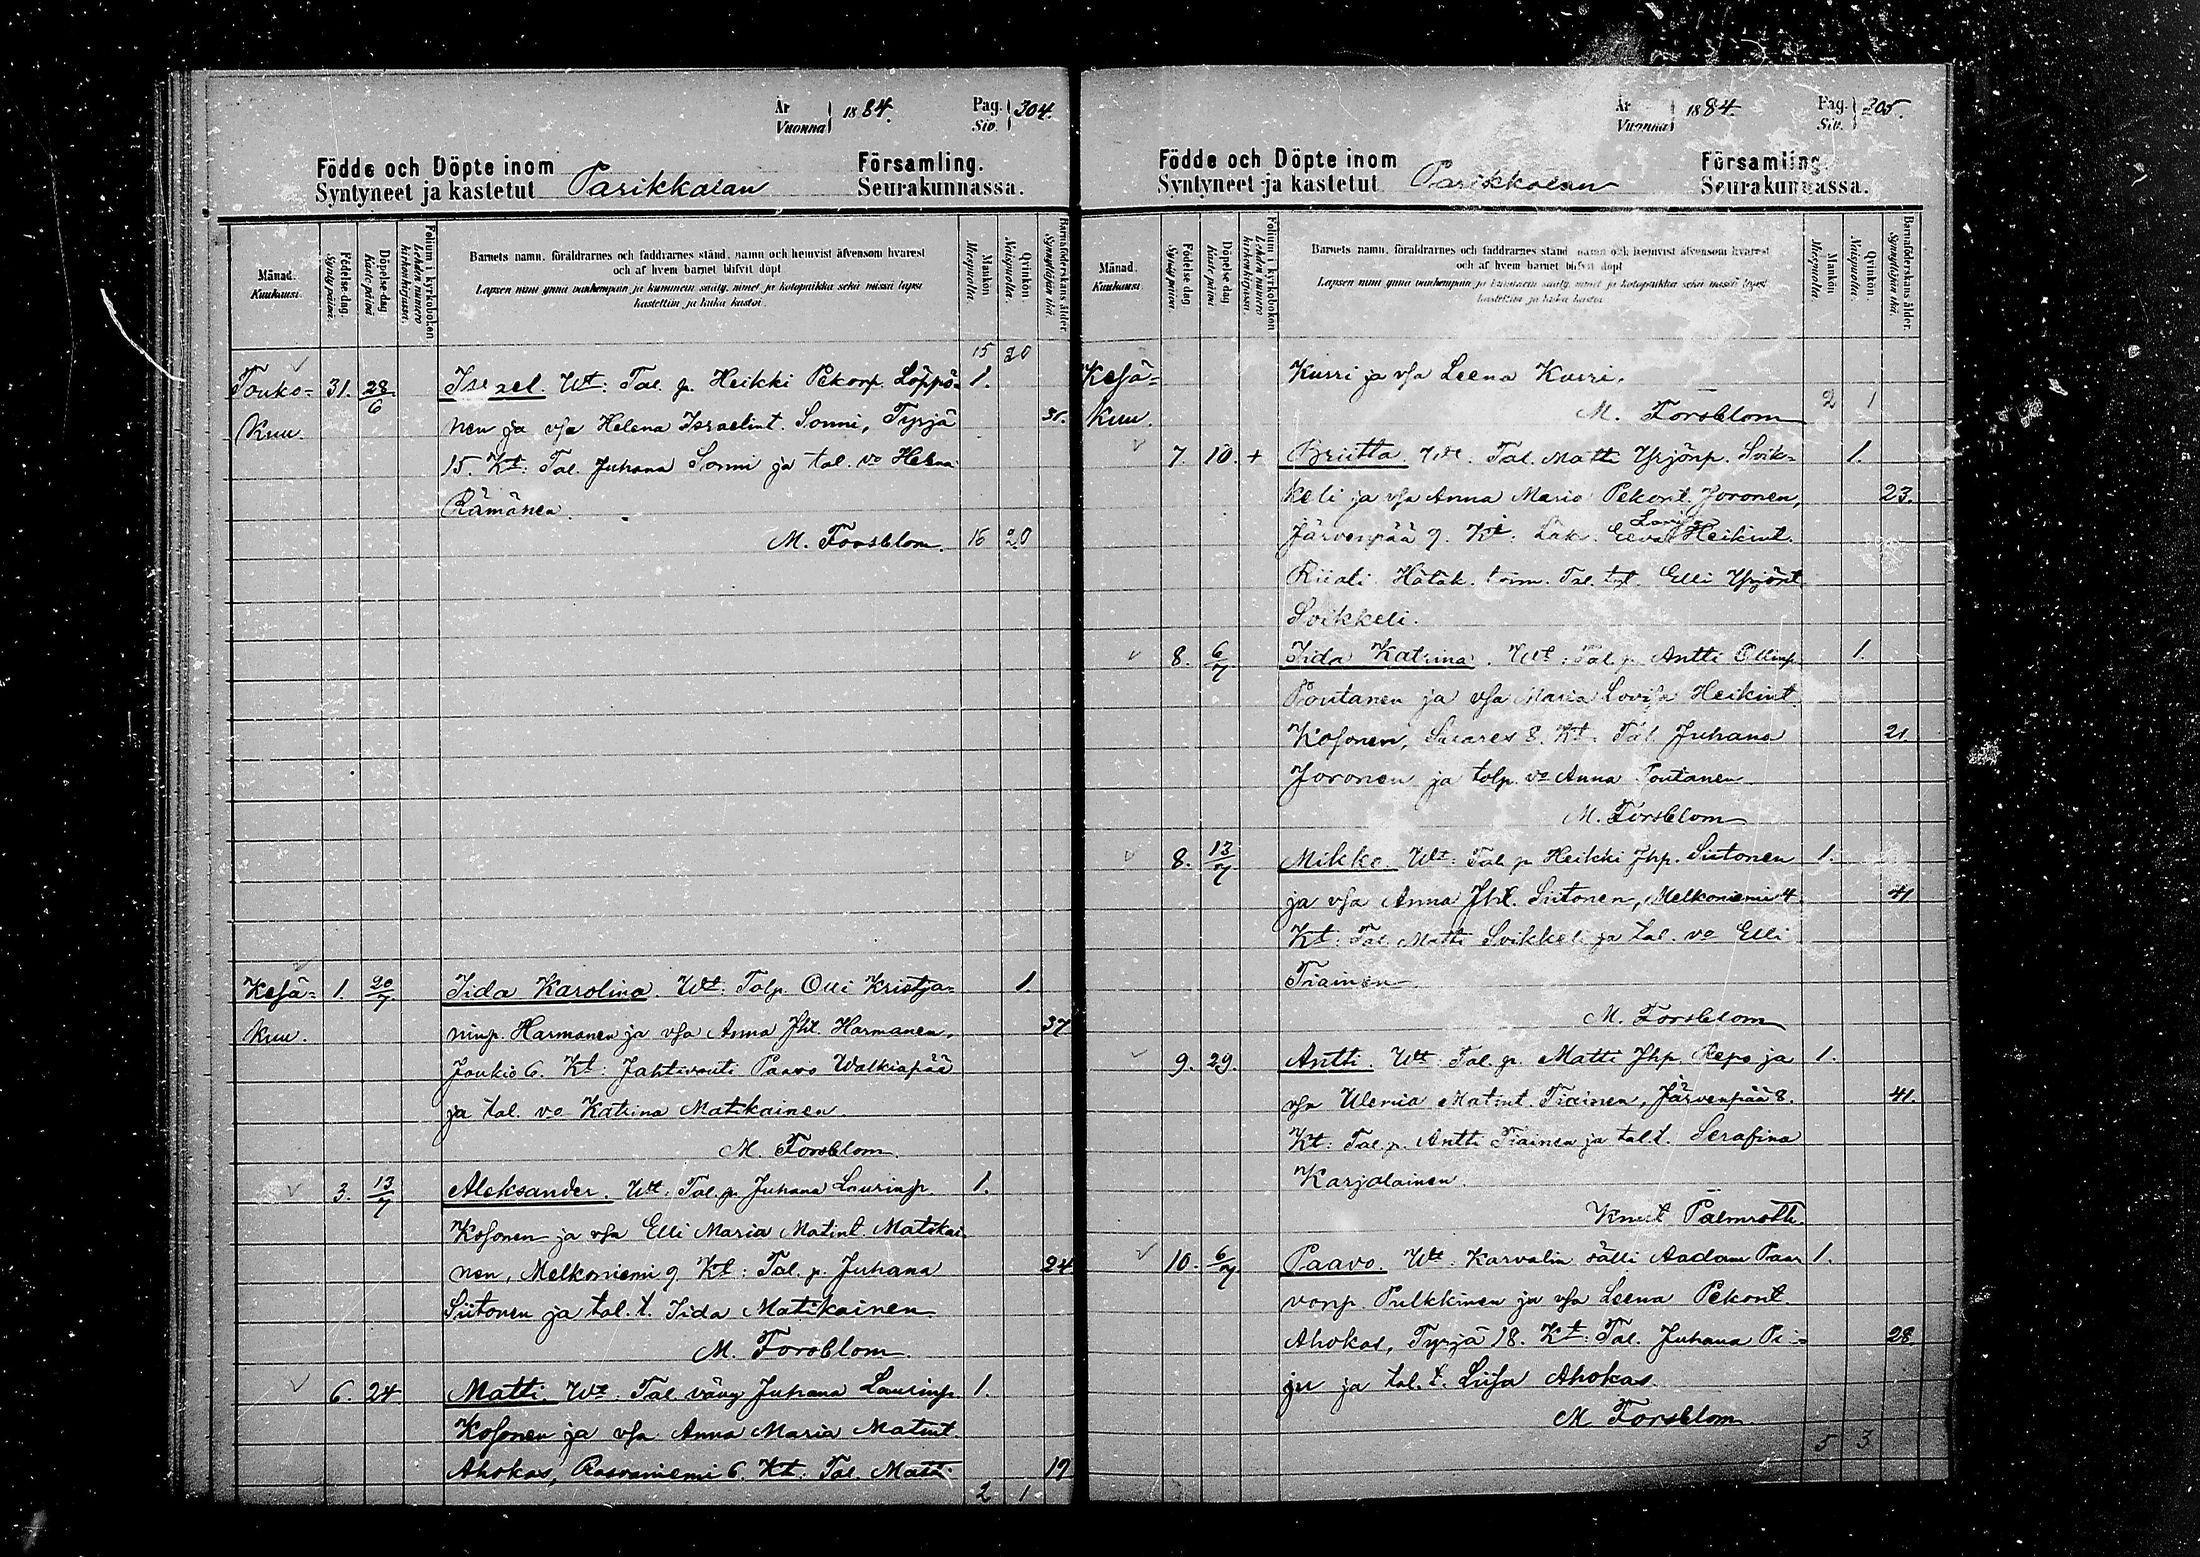 År
Vuonna 1884.
Pag.
Siv. 304.
Födde och Döpte inom
Syntyneet ja kastetut Parikkalan
Församling.
Seurakunnassa.
Månad.
Kuukausi.
Födelse-dag
Syntypäivä.
Döpelse-dag
Kaste-päivä
Folium i kyrkoboken
Lehden numero kirkonkirjassa.
Barnets namn, föräldrarnes och faddrarnes stånd, namn och hemvist äfvensom hvarest
och af hvem barnet blifvit döpt
Lapsen nimi ynnä vanhempain ja kummein sääty, nimet ja kotopaikka sekä missä lapsi
kastettiin ja kuka kastoi.
Mankön
Miespuolia.
Qvinkön.
Naispuolia.
Barnaföderskans ålder.
Synnyttäjän ikä.
15 20
Touko- 31. 28/6 Israel. Wt: Tal. p. Heikki Pekanp. Löppö- 1.
kuu. nen ja vsa Helena Israelint. Sonni, Tyrjä 31.
15. Kt: Tal. Juhana Sonni ja tal. vo Helena
Rämänen.
M. Forsblom. 16 20
Kesä- 1. 20/7 Iida Karolina. Wt: Talp. Olli Kristja- 1.
kuu. ninp. Harmanen ja vsa Anna Jht. Harmanen, 37
Joukio 6. Kt: Jahtivouti Paavo Walkiapää
ja tal. vo Katrina Matikainen
M. Forsblom.
3. 13/7 Aleksander. Wt: Tal. p. Juhana Laurinp. 1.
Kosonen ja vsa Elli Maria Matint. Matikai
nen, Melkoniemi 9. Kt: Tal. p. Juhana 24
Siitonen ja tal. t. Iida Matikainen.
M. Forsblom.
6. 24 Matti. Wt: Tal. vävy Juhana Laurinp. 1.
Kosonen ja vsa Anna Maria Matint.
Ahokas, Rasvaniemi 6. Kt: Tal. Matti 19
2 1
År
Vuonna 1884.
Pag.
Siv. 305.
Födde och Döpte inom
Syntyneet ja kastetut Parikkalan
Församling.
Seurakunnassa.
Månad.
Kuukausi.
Födelse-dag
Syntypäivä.
Döpelse-dag
Kaste-päivä
Folium i kyrkoboken
Lehden numero kirkonkirjassa.
Barnets namn, föräldrarnes och faddrarnes stånd, namn och hemvist äfvensom hvarest
och af hvem barnet blifvit döpt
Lapsen nimi ynnä vanhempain ja kummein sääty, nimet ja kotopaikka sekä missä lapsi
kastettiin ja kuka kastoi
Mankön
Miespuolia.
Qvinkön.
Naispuolia.
Barnaföderskans ålder.
Synnyttäjän ikä.
Kesä- Kurri ja vsa Leena Kurri.
kuu. M. Forsblom 2 1
7. 10. + Briitta. Wt: Tal. Matti Yrjönp. Svik- 1.
keli ja vsa Anna Maria Pekant. Joronen, 23.
Järvenpää 9. Kt: Eeva Lovisa Heikint.
Riiali. Hätäk. toim. Tal. tyt. Elli Yrjönt
Svikkeli.
8. 6/7 Iida Katrina. Wt: Tal. p. Antti Ollinp. 1.
Poutanen ja vsa Maria Lovisa Heikint.
Kosonen, Saares 8. Kt: Tal. Juhana 21.
Joronen ja talp. vo Anna Poutanen
M. Forsblom
8. 13/7 Mikko. Wt: Tal. p Heikki Jhp. Siitonen 1.
ja vsa Anna Jht. Siitonen, Melkoniemi 4 41
Kt: Tal. Matti Svikkeli ja tal. vo Elli
Tiainen
M. Forsblom
9. 29. Antti. Wt: Tal. p. Matti Jhp. Repo ja 1.
vsa Ulemia Matint. Tiainen, Järvenpää 8. 41.
Kt: Tal. p. Antti Tiainen ja tal t. Serafina
Karjalainen.
Knut Palmroth.
10. 6/7 Paavo. Wt. Karvalin sälli Aadam Paa 1.
vonp. Pulkkinen ja vsa Leena Pekant.
Ahokas, Tyrjä 18. Kt: Tal. Juhana Pi- 28
ju ja tal. t. Liisa Ahokas.
M Forsblom
5 3